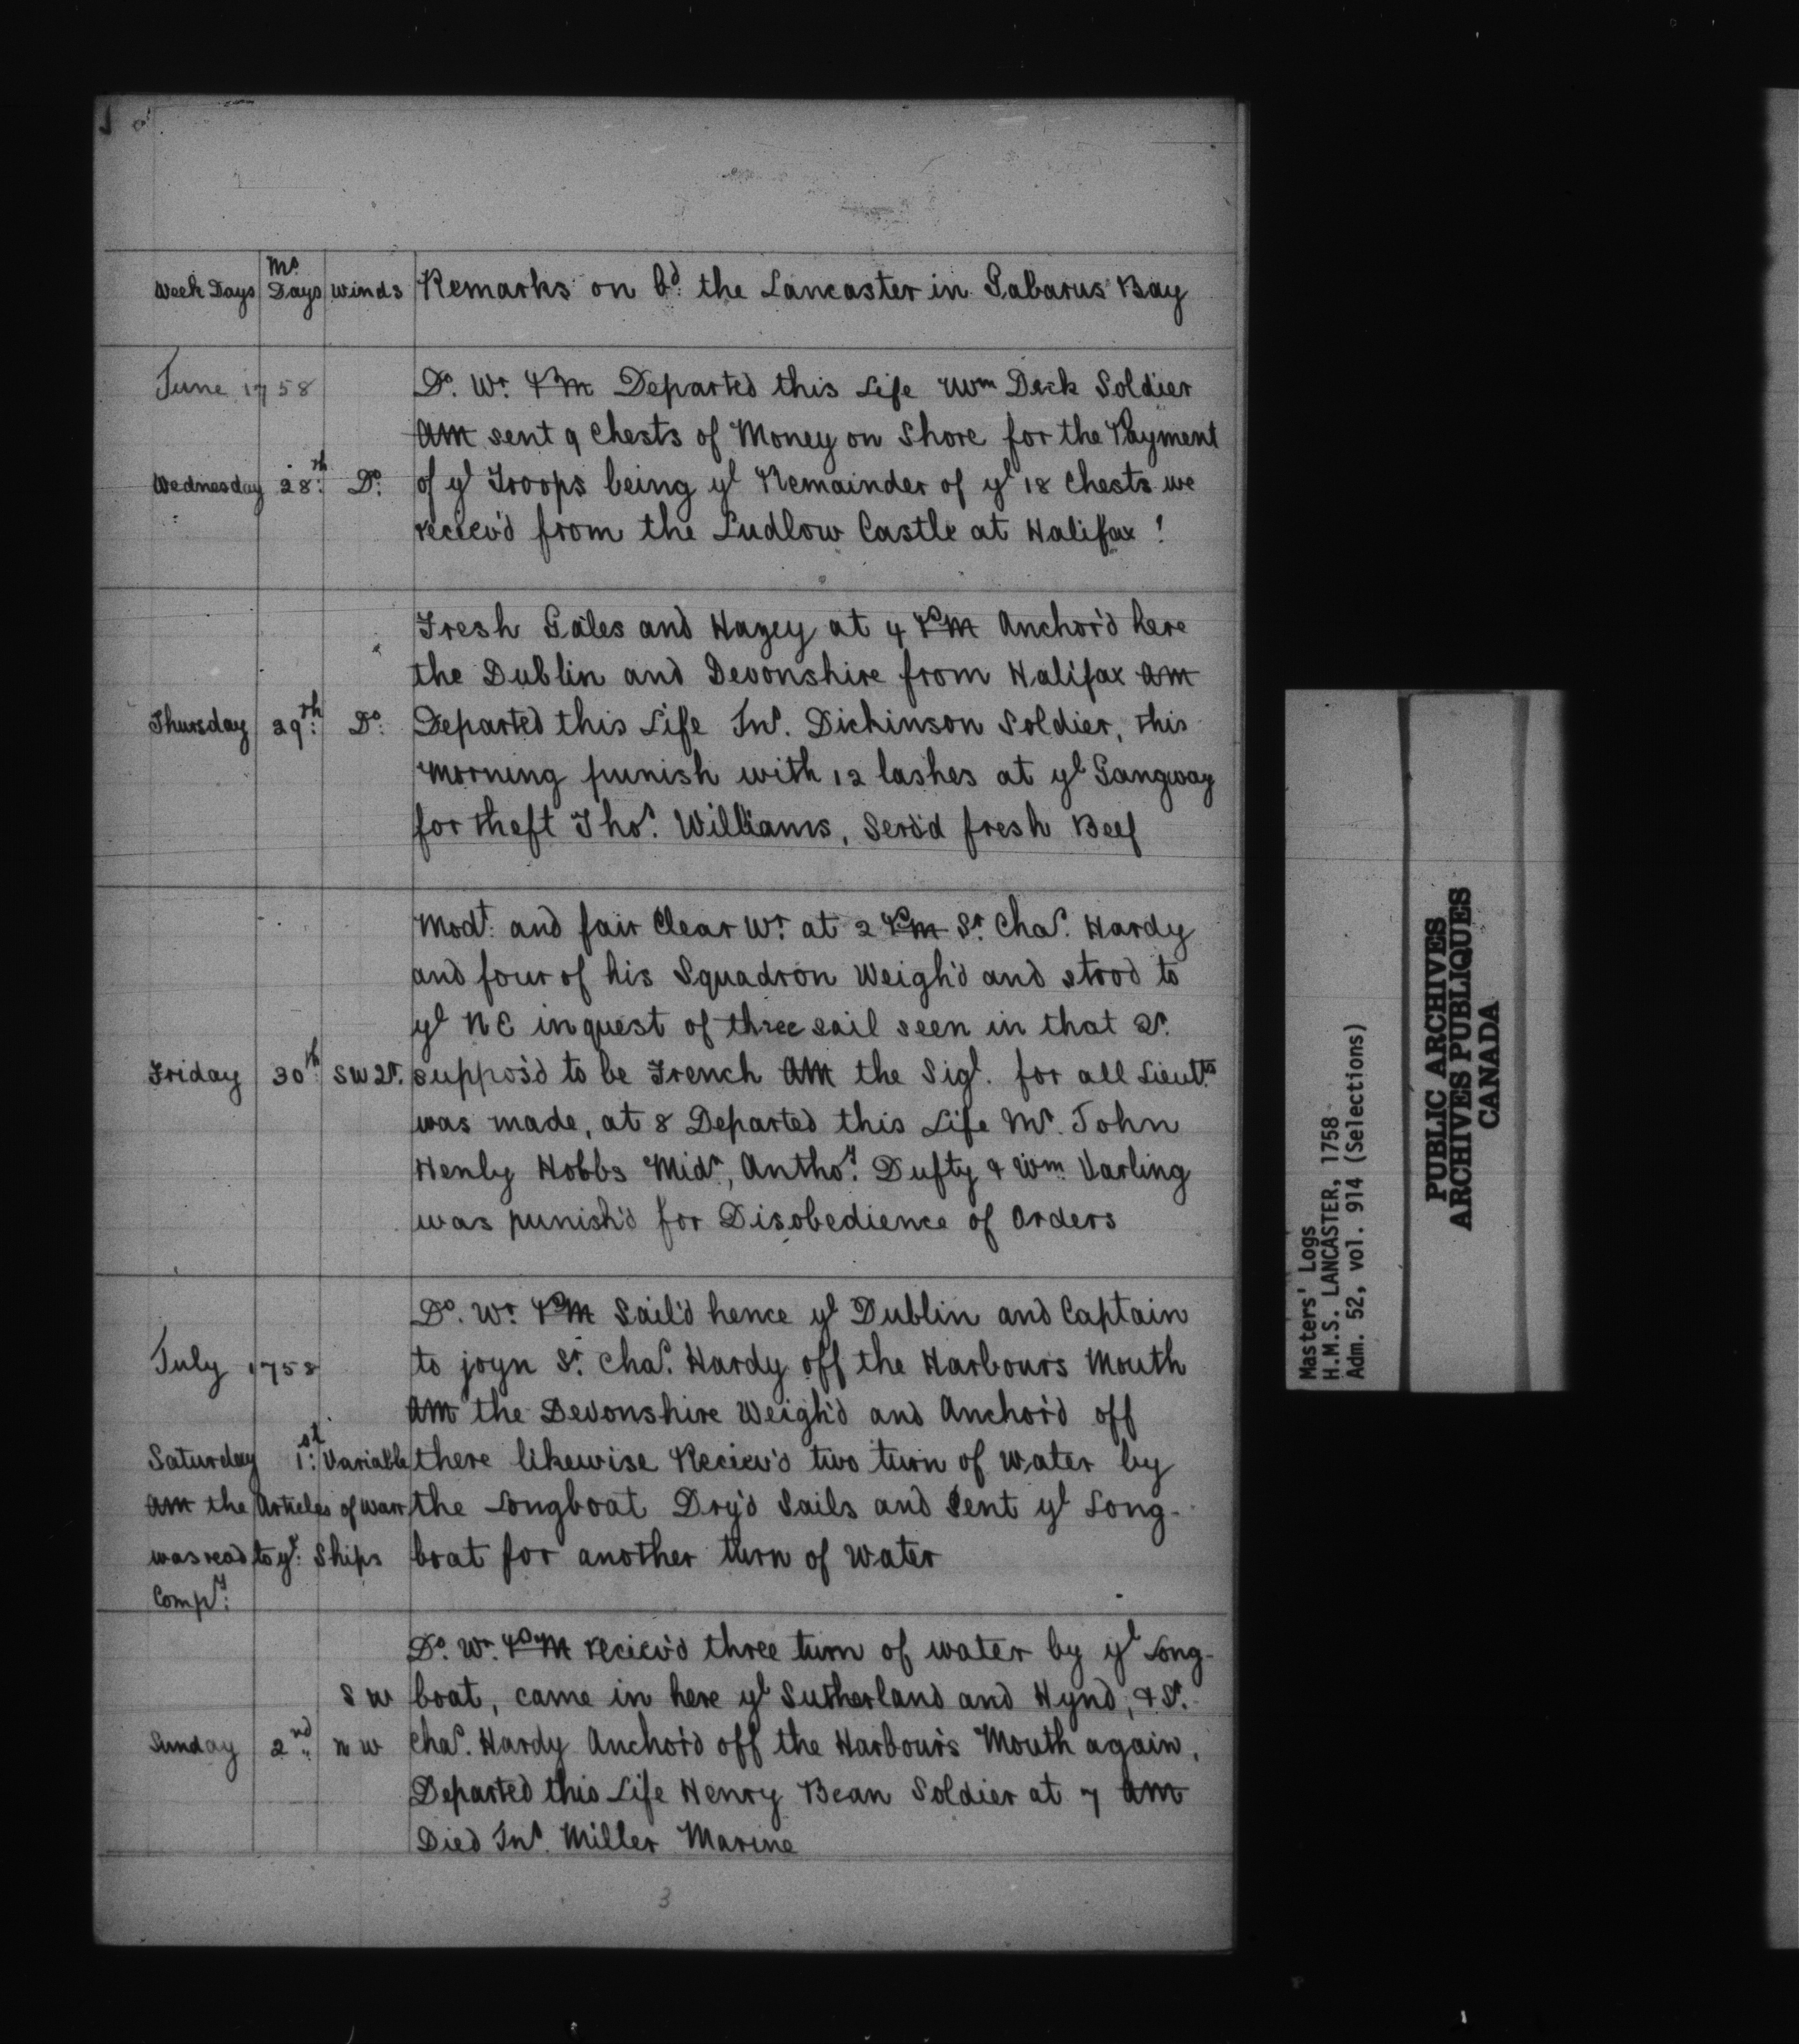 Week Days Mo Days Winds Remarks on bd: the Lancaster in Gabarus Bay
June 1758
Do. Wr. PM Departed this Life Wm Deck Soldier
AM sent 9 Chests of Money on Shore for the Payment
Wednesday 28th: Do: of ye Troops being ye Remainder of ye 18 Chests we
reciev'd from the Ludlow Castle at Halifax !
Fresh Gales and Hazey at 4 PM Anchor'd here
the Dublin and Devonshire from Halifax AM
Thursday 29th: Do: Departed this Life Jno. Dickinson Soldier, this
Morning punish with 12 lashes at ye Gangway
for theft Thos. Williams, Serv'd fresh Beef
Modt: and fair Clear Wr. at 2 PM Sr. Chas. Hardy
and four of his Squadron Weigh'd and stood to
ye NE in quest of three sail seen in that Qr.
Friday 30th: SW Qr. suppos'd to be French AM the Sigl. for all Lieuts
was made, at 8 Departed this Life Mr. John
Henly Hobbs Midn, Anthoy. Dufty & Wm Varling
was punish'd for Disobedience of Orders
Do. Wr. PM Sail'd hence ye Dublin and Captain
July 1758 to joyn Sr. Chas. Hardy off the Harbours Mouth
AM the Devonshire Weigh'd and Anchor'd off
Saturday 1st: Variable there likewise Reciev'd two turn of Water by
AM the Articles of Warr the Longboat Dry'd Sails and Sent ye Long-
was read to ye: Ships boat for another turn of Water
Compy:
Do. Wr. PM reciev'd three turn of water by ye Long-
SW boat, came in here ye Sutherland and Hynd, & Sr.
Sunday 2nd: NW Chas. Hardy Anchor'd off the Harbour's Mouth again,
Departed this Life Henry Bean Soldier at 7 AM
Died Jno. Miller Marine
3
Masters' Logs
H.M.S. LANCASTER, 1758
Adm. 52, vol. 914 (Selections)
PUBLIC ARCHIVES
ARCHIVES PUBLIQUES
CANADA